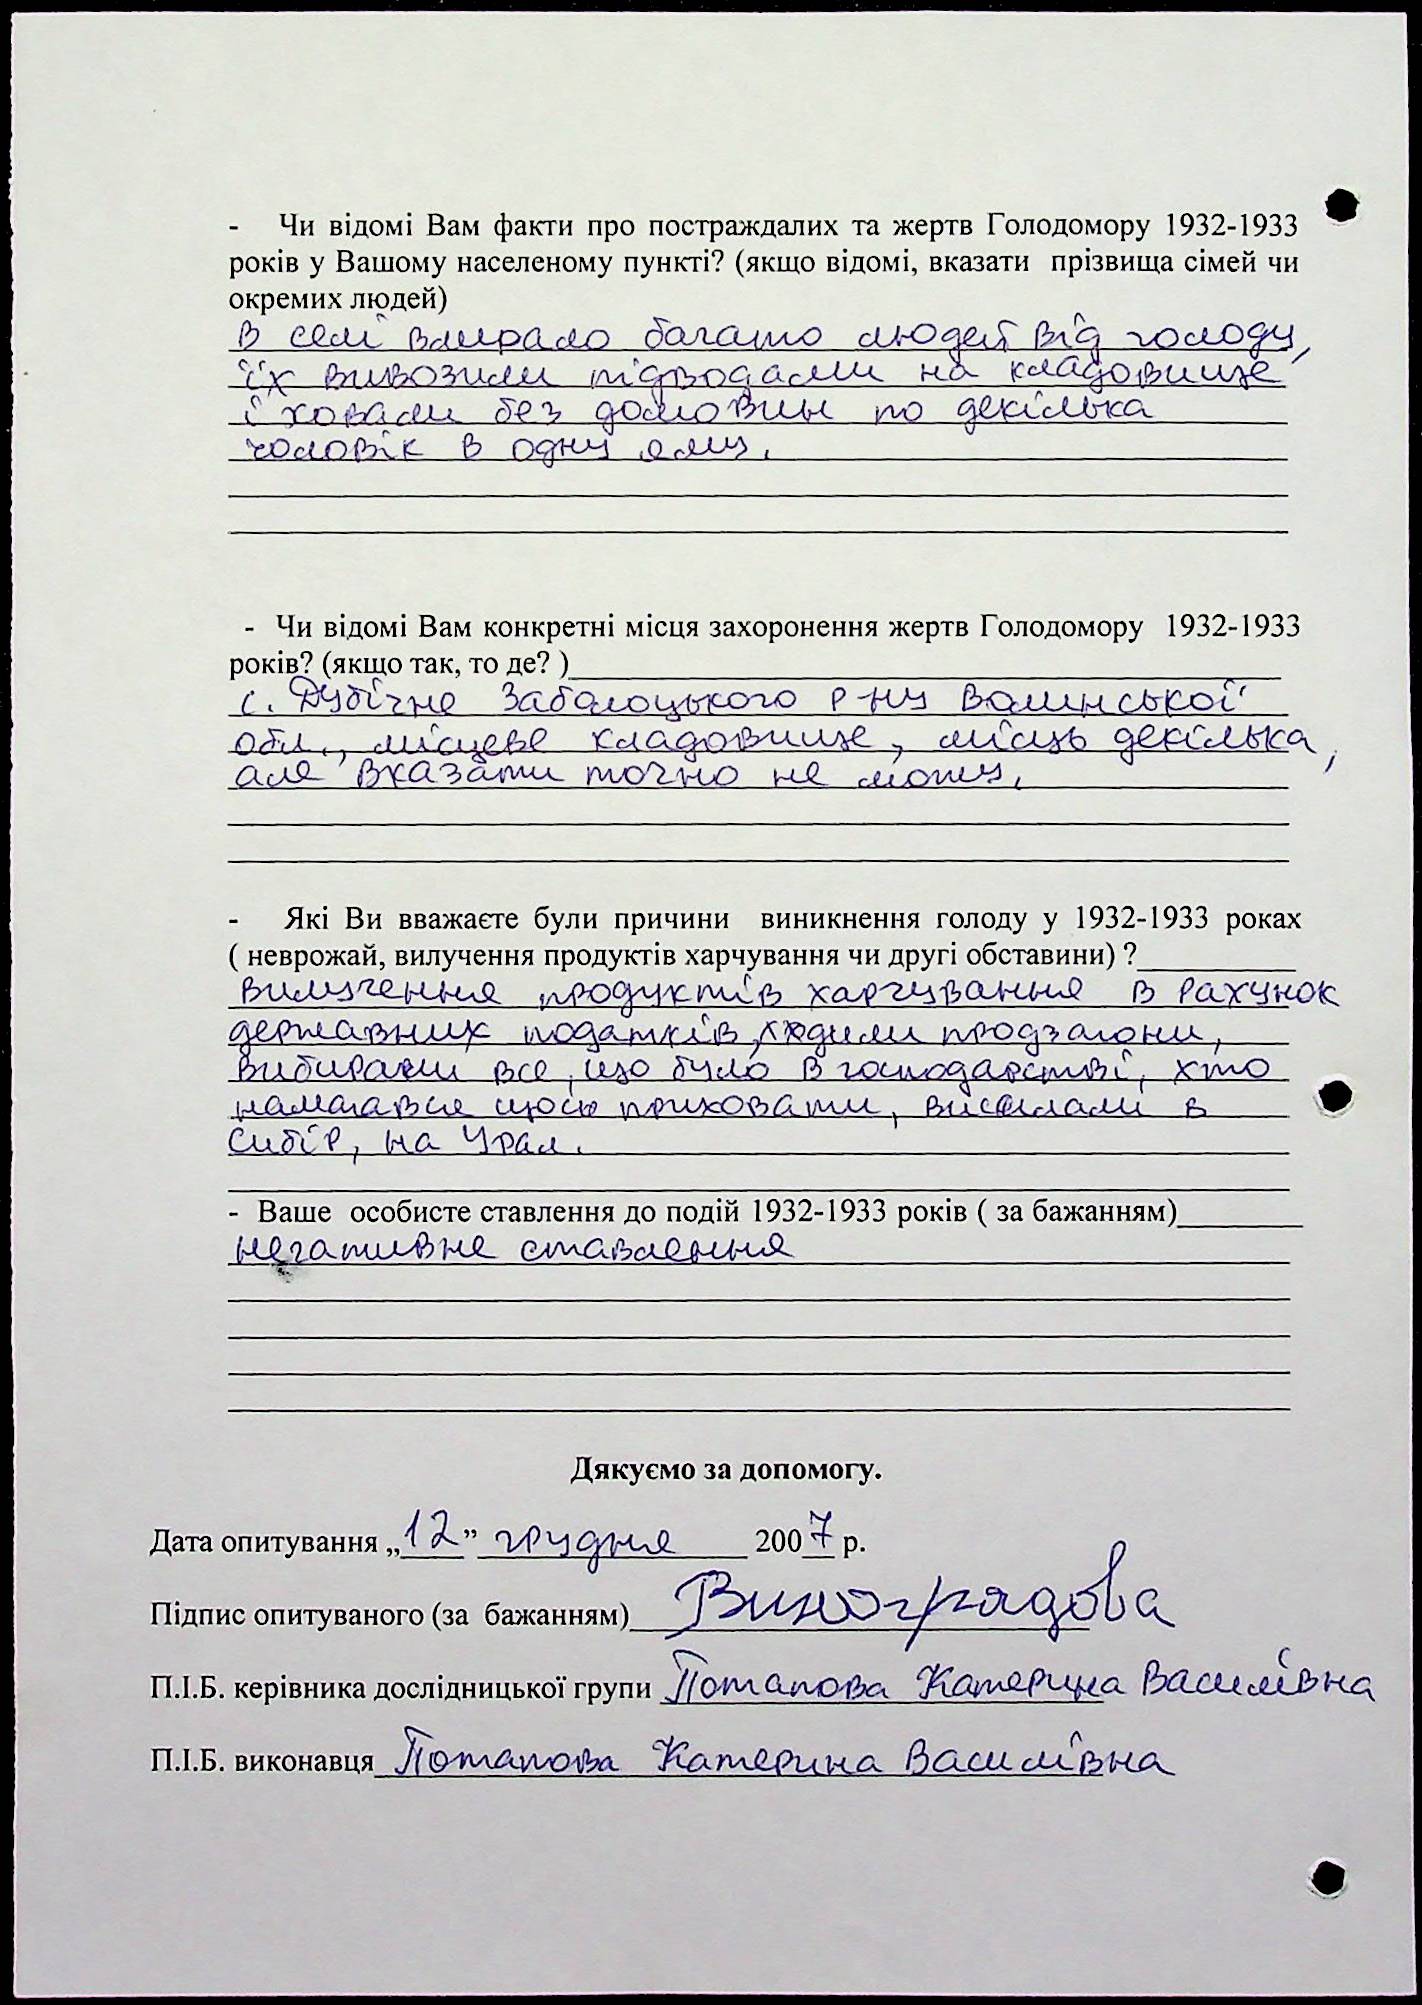 - Чи відомі Вам факти про постраждалих та жертв Голодомору 1932-1933
років у Вашому населеному пункті? (якщо відомі, вказати прізвища сімей чи
окремих людей)
В селі вмирало багато людей від голоду,
їх вивозили підводами на кладовище
і ховали без домовин по декілька
чоловік в одну яму.
- Чи відомі Вам конкретні місця захоронення жертв Голодомору 1932-1933
років? (якщо так, то де? )
с. Дубічне Заболоцького р-ну Волинської
обл., місцеве кладовище, місць декілька,
але вказати точно не можу.
- Які Ви вважаєте були причини виникнення голоду у 1932-1933 роках
( неврожай, вилучення продуктів харчування чи другі обставини) ?
Вилучення продуктів харчування в рахунок
державних податків, ходили продзагони,
вибирали все, що було в господарстві, хто
намагався щось приховати, висилали в
Сибір, на Урал.
- Ваше особисте ставлення до подій 1932-1933 років ( за бажанням)
негативне ставлення
Дякуємо за допомогу.
Дата опитування „12” грудня 2007 р.
Підпис опитуваного (за бажанням) Виноградова
П.І.Б. керівника дослідницької групи Потапова Катерина Василівна
П.І.Б. виконавця Потапова Катерина Василівна